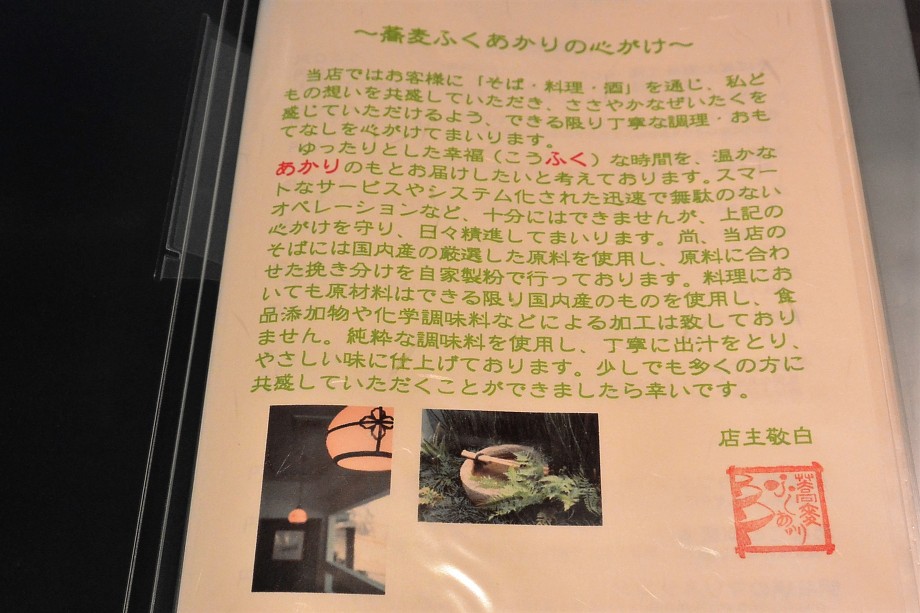 ～蕎麦ふくあかりの心がけ～
当店ではお客様に「そば・料理・酒」を通じ、私ど
もの想いを共感していただき、ささやかなぜいたくを
感じていただけるよう、できる限り丁寧な調理・おも
てなしを心がけてまいります。
ゆったりとした幸福（こうふく）な時間を、温かな
あかりのもとお届けしたいと考えております。スマー
トなサービスやシステム化された迅速で無駄のない
オペレーションなど、十分にはできませんが、上記の
心がけを守り、日々精進してまいります。尚、当店の
そばには国内産の厳選した原料を使用し、原料に合わ
せた挽き分けを自家製粉で行っております。料理にお
いても原材料はできる限り国内産のものを使用し、食
品添加物や化学調味料などによる加工は致しており
ません。純粋な調味料を使用し、丁寧に出汁をとり、
やさしい味に仕上げております。少しでも多くの方に
共感していただくことができましたら幸いです。
店主敬白
蕎麦
ふくあかり